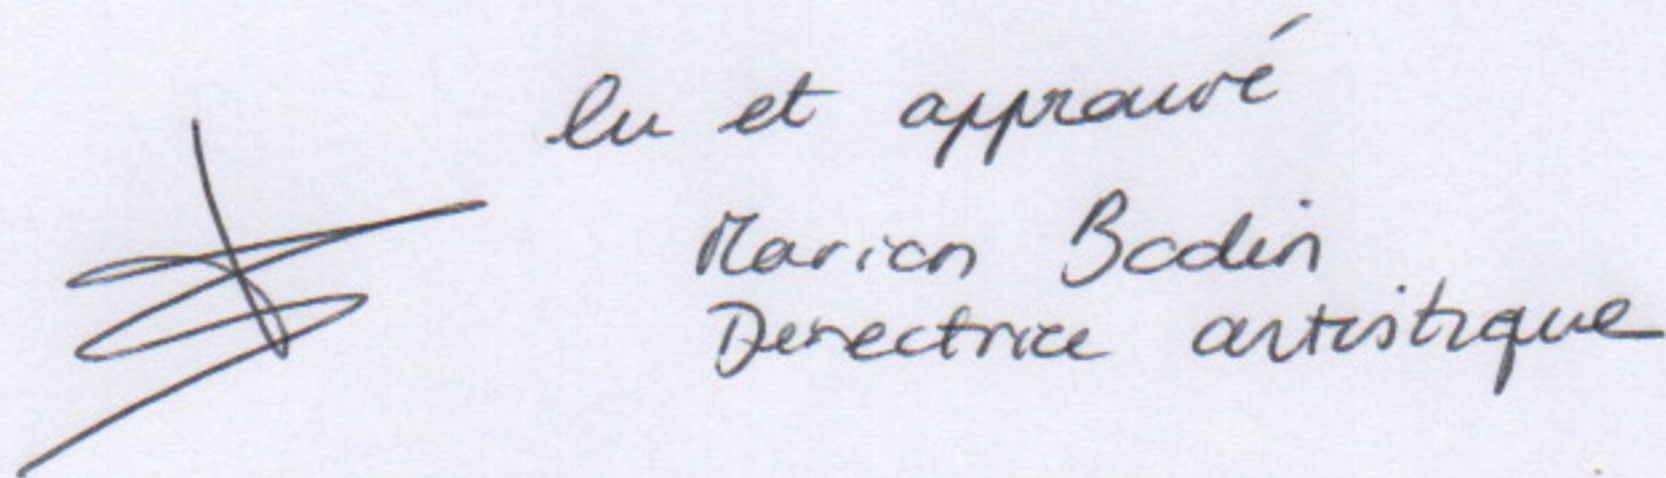 lu et approuvé
Marion Bodin
Directrice artistique